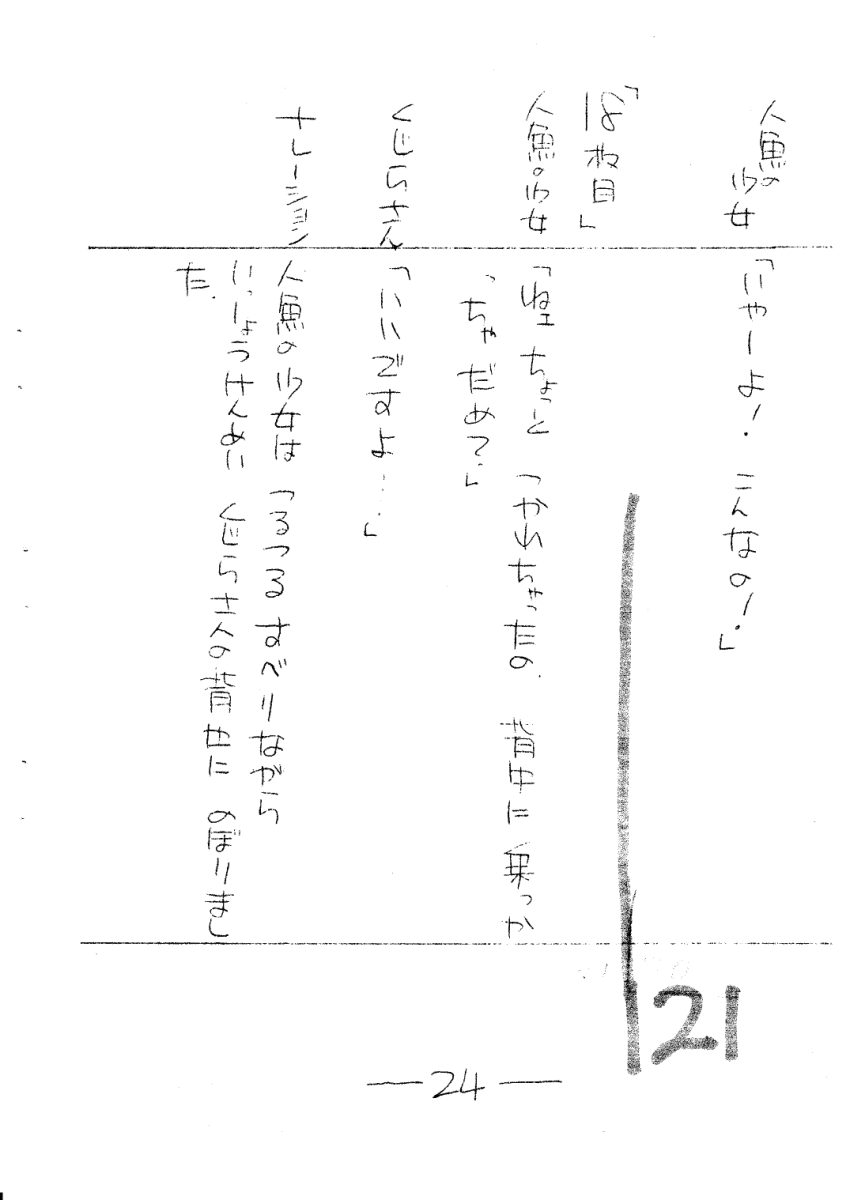 人魚の少女「いやーよ!こんなのー!」
「18枚目」
人魚の少女「堅 ちょっと つかれちゃったの.背中に乗っか
っちゃだめ?」
くじらさん「いいですよ…」
ナレーション 人魚の少女は つるつる すべりながら
いっしょうけんめい くじらさんの背中に のぼりまし
た.
21
—24—